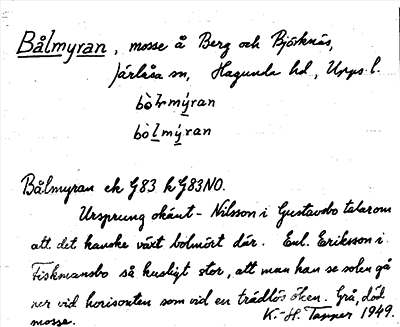 Bålmyran, mosse å Berg och Björknäs,
Järlåsa sn, Hagunda hd, Upps. l.
bòlmýran
bòlmýran
Bålmyran ek G83 h G83NO.
Ursprung okänt - Nilsson i Gustavsbo talar om
att det kanske växt bolmört där. Enl. Eriksson i
Fiskmansbo så husligt stor, att man kan se solen gå
ner vid horisonten som vid en trädlös öken. Grå, död
mosse. K.-H. Tapper 1949.